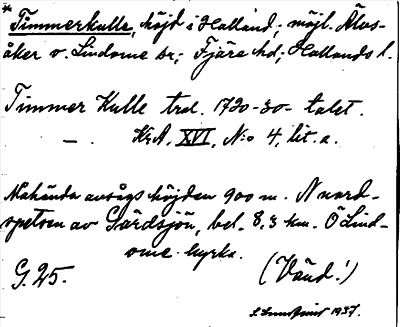 * Timmerkulle, höjd i Halland; möjl. Älvs-
åker v. Lindome sn; Fjäre hd; Hallands l.
Timmer Kulle trol. 1720-30-talet.
— . KrA. XVI, N:o 4, lit. a.
Måhända avsågs höjden 900 m. N nord-
spetsen av Gärdsjön, bel. 8,3 km. Ö Lind-
ome kyrka.
G. 25. (Vänd!)
1937.